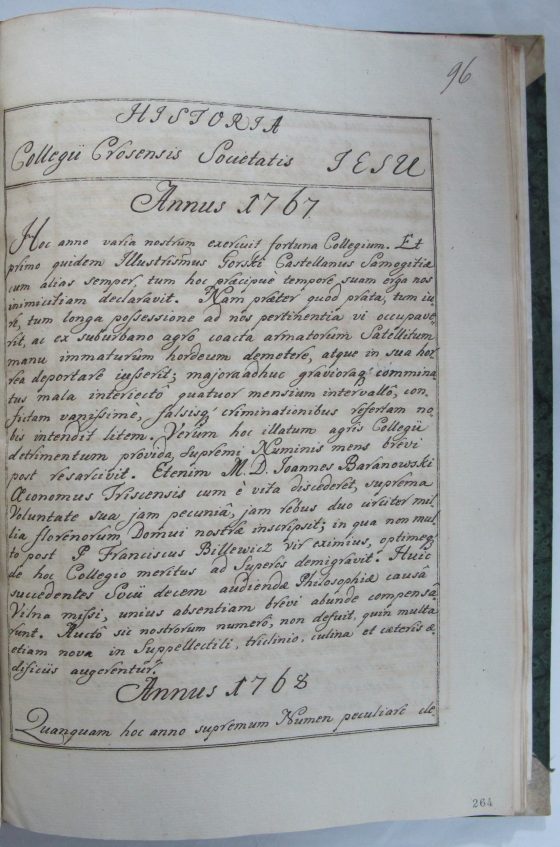 96
HISTORIA
Collegii Crosensis Societatis IESU
Annus 1767
Hoc anno varia nostrum exercuit fortuna Collegium. Et
primo quidem Illustrissimus Gorski Castellanus Samogitiæ
cum alias semper, tum hoc præcipuè tempore, suam erga nos
inimicitiam declaravit. Nam præter quod prata, tum iu-
re, tum longa possessione ad nos pertinentia vi occupave-
rit, ac ex suburbano agro coacta armatorum Satellitum
manu immaturum hordeum demetere, atque in sua hor-
rea deportare iusserit; majora adhuc gravioraq́ commina-
tus mala interiectô quatuor mensium intervallô, con-
fictam vanissime, falsisq́ criminationibus refertam no-
bis intendit litem. Verùm hoc illatum agris Collegii
detrimentum provida Supremi Numinis mens brevi
post resarcivit. Etenim M. D. Ioannes Baranowski
Œconomus Triscensis cum è vita discederet, suprema
Voluntate sua jam pecuniâ, jam rebus duo circiter mil-
lia florenorum Domui nostræ inscripsit; in qua non mul-
to post P. Franciscus Billewicz vir eximius, optimeq́
de hoc Collegio meritus ad Superos demigravit. Huic
succedentes Socii decem audiendæ Philosophiæ causâ
Vilna missi, unius absentiam brevi abunde compensâ-
runt. Auctô sic nostrorum numerô, non defuit, quin multa
etiam nova in Suppellectili, triclinio, culina et cæteris æ-
dificiis augerentur.
Annus 1768
Quanquam hoc anno supremum Numen peculiare de-
264